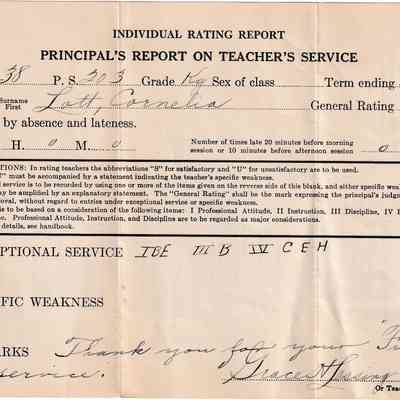 INDIVIDUAL RATING REPORT
PRINCIPAL'S REPORT ON TEACHER'S SERVICE
38 P. S. 203 Grade Kg Sex of class Term ending
Surname First Lott, Cornelia General Rating
by absence and lateness.
H. 0 M. 0 Number of times late 20 minutes before morning session or 10 minutes before afternoon session 0
TIONS: In rating teachers the abbreviations "S" for satisfactory and "U" for unsatisfactory are to be used.
U" must be accompanied by a statement indicating the teacher's specific weakness.
l service is to be recorded by using one or more of the items given on the reverse side of this blank, and either specific weak
ay be amplified by an explanatory statement. The "General Rating" shall be the mark expressing the principal's judg
oval, without regard to entries under exceptional service or specific weakness.
is to be based on a consideration of the following items: I Professional Attitude, II Instruction, III Discipline, IV
e. Professional Attitude, Instruction, and Discipline are to be regarded as major considerations.
details, see handbook.
EPTIONAL SERVICE I B E III B IV C E H
FIC WEAKNESS
ARKS Thank you for your
service. Grace
Or Tea